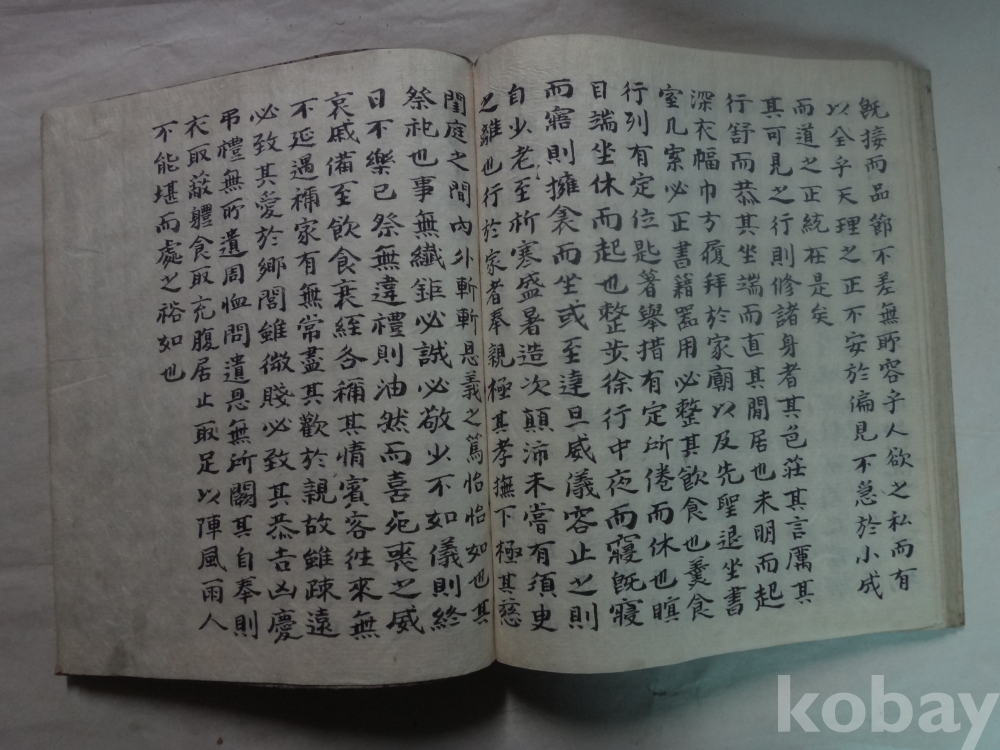 既接而品節不差無所容乎人欲之私而有
以全乎天理之正不安於偏見不急於小成
而道之正統在是矣
其可見之行則修諸身者其色莊其言厲其
行舒而恭其坐端而直其閒居也未明而起
深衣幅巾方履拜於家廟以及先聖退坐書
室几案必正書籍器用必整其飮食也羹食
行列有定位匙箸擧措有定所倦而休也瞑
目端坐休而起也整步徐行中夜而寢旣寢
而寤則擁衾而坐或至達旦威儀容止之則
自少老至祈寒盛暑造次顚沛未嘗有須臾
之離也行於家者奉親極其孝撫下極其慈
閨庭之間內外斬斬恩義之篤怡怡如也其
祭祀也事無纖鉅必誠必敬少不如儀則終
日不樂已祭無違禮則油然而喜死喪之威
哀戚備至飮食衰絰各稱其情賓客往來無
不延遇稱家有無常盡其歡於親故雖疎遠
必致其愛於鄕閭雖微賤必致其恭吉凶慶
弔禮無所遺周恤問遺恩無所闕其自奉則
衣取蔽軆食取充腹居止取足以障風雨人
不能堪而處之裕如也
kobay